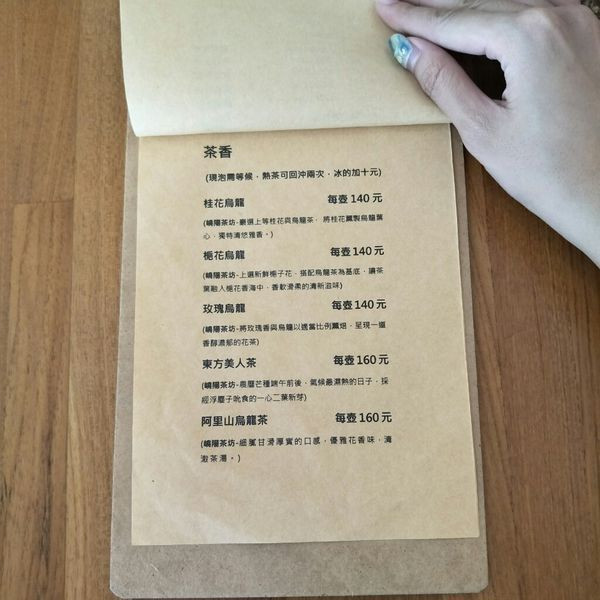 茶香
(現泡需等候，熱茶可回沖兩次，冰的加十元)
桂花烏龍 每壺 140 元
(嶢陽茶坊-嚴選上等桂花與烏龍茶，將桂花薰製烏龍葉
心，獨特清悠雅香。)
梔花烏龍 每壺 140 元
(嶢陽茶坊-上選新鮮梔子花，搭配烏龍茶為基底，讓茶
葉融入梔花香海中，香軟滑柔的清新滋味)
玫瑰烏龍 每壺 140 元
(嶢陽茶坊-將玫瑰香與烏龍以適當比例薰焙，呈現一道
香醇濃郁的花茶)
東方美人茶 每壺 160 元
(嶢陽茶坊-農曆芒種端午前後，氣候最濕熱的日子，採
經浮塵子吮食的一心二葉新芽)
阿里山烏龍茶 每壺 160 元
(嶢陽茶坊-細膩甘滑厚實的口感，優雅花香味，清
澈茶湯。)